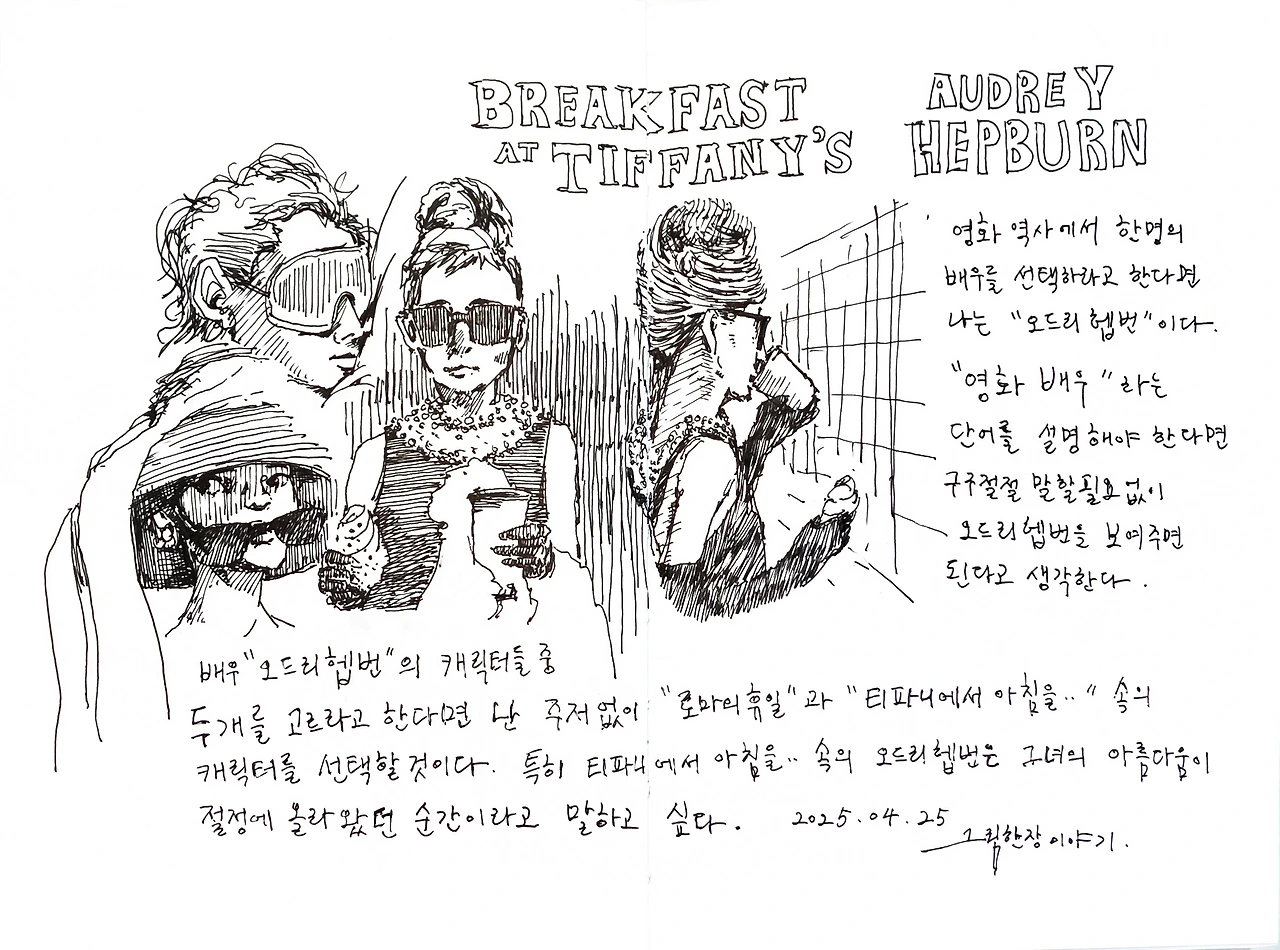 BREAKFAST
AT TIFFANY'S
AUDREY
HEPBURN
영화 역사에서 한명의
배우를 선택하라고 한다면
나는 "오드리 헵번"이다.
"영화 배우"라는
단어를 설명해야 한다면
구구절절 말할필요 없이
오드리 헵번을 보여주면
된다고 생각한다.
배우 "오드리 헵번"의 캐릭터들 중
두 개를 고르라고 한다면 난 주저 없이 "로마의 휴일"과 "티파니에서 아침을.." 속의
캐릭터를 선택할 것이다. 특히 티파니에서 아침을.. 속의 오드리 헵번은 그녀의 아름다움이
절정에 올라왔던 순간이라고 말하고 싶다. 2025.04.25
그림한장 이야기.